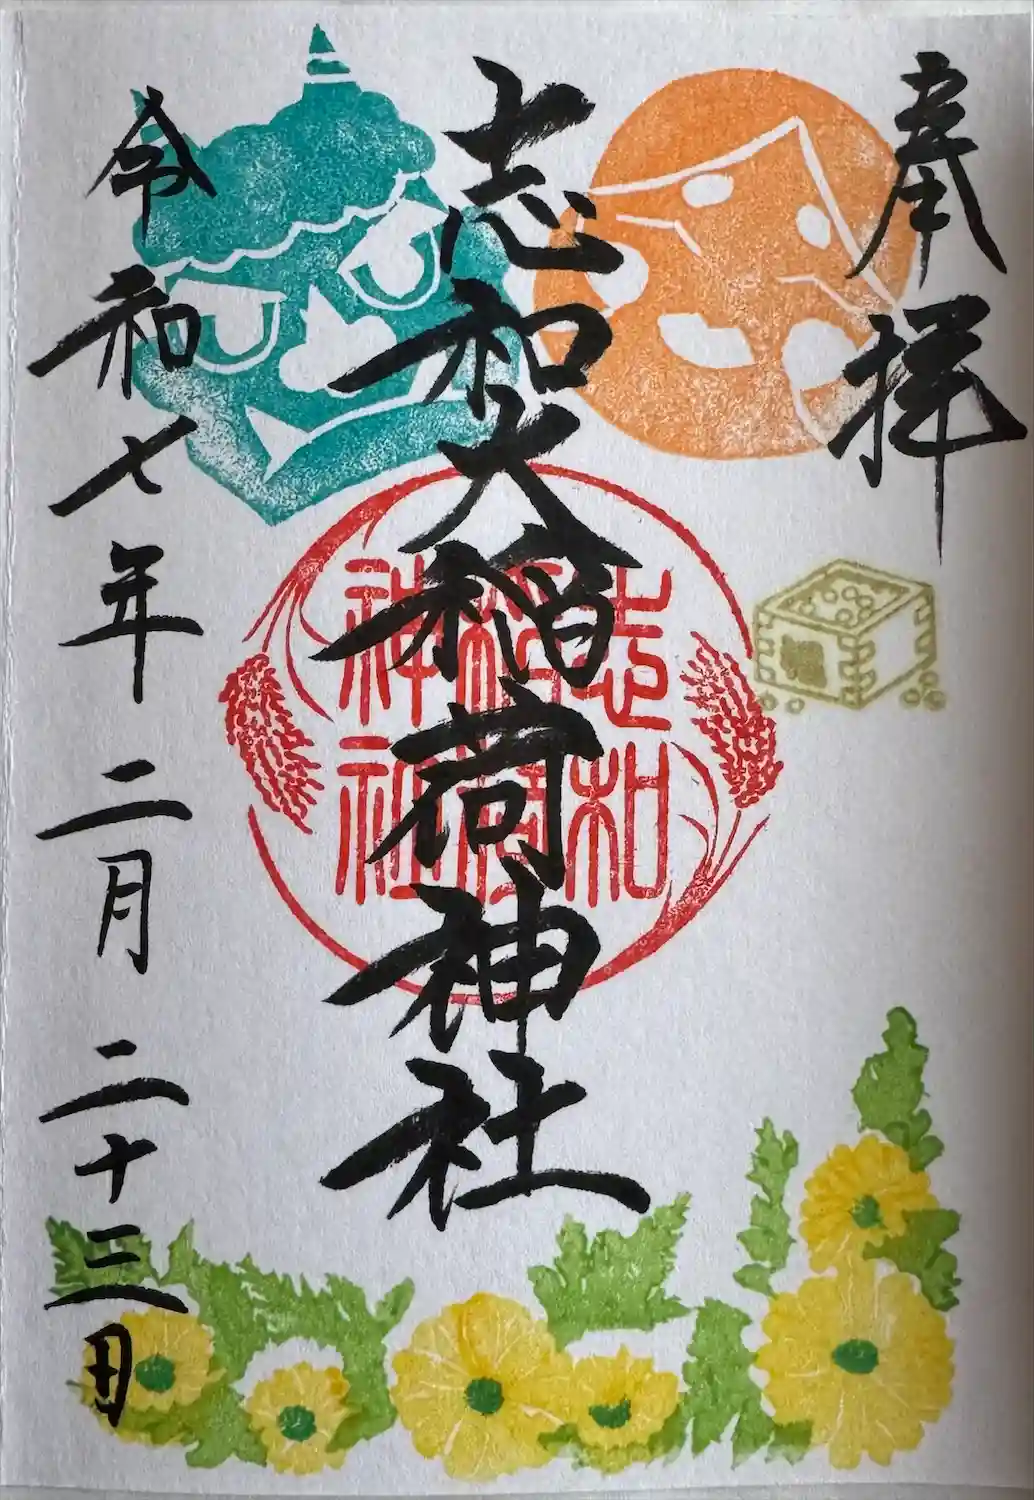 奉拝
志和大稲荷神社
志和
稲荷
神社
令和七年二月二十三日